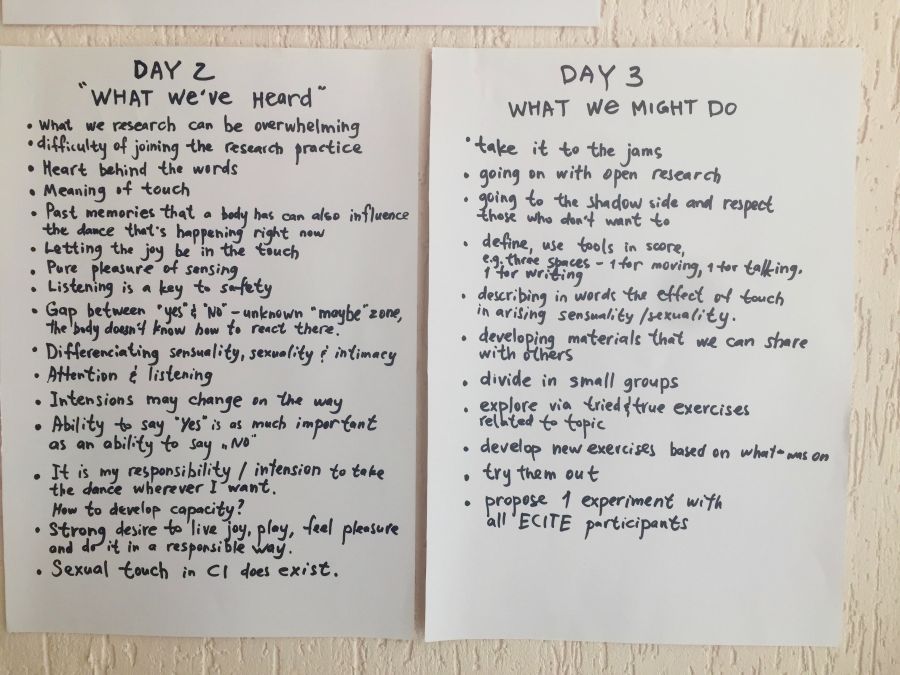 DAY 2
"WHAT WE'VE HEARD"
• What we research can be overwhelming
• difficulty of joining the research practice
• Heart behind the words
• Meaning of touch
• Past memories that a body has can also influence
the dance that's happening right now
• Letting the joy be in the touch
• Pure pleasure of sensing
• Listening is a key to safety
• Gap between "yes" & "NO" - unknown "maybe" zone,
the body doesn't know how to react there.
• Differenciating sensuality, sexuality & intimacy
• Attention & listening
• Intensions may change on the way
• Ability to say "Yes" is as much important
as an ability to say „NO"
• It is my responsibility / intension to take
the dance wherever I want.
How to develop capacity?
• Strong desire to live joy, play, feel pleasure
and do it in a responsible way.
• Sexual touch in CI does exist.
DAY 3
WHAT WE MIGHT DO
• take it to the jams
• going on with open research
• going to the shadow side and respect
those who don't want to
• define, use tools in score,
e.g. three spaces - 1 for moving, 1 for talking.
1 for writing
• describing in words the effect of touch
in arising sensuality/sexuality.
• developing materials that we can share
with others
• divide in small groups
• explore via tried & true exercises
related to topic
• develop new exercises based on what was on
• try them out
• propose 1 experiment with
all ECITE participants